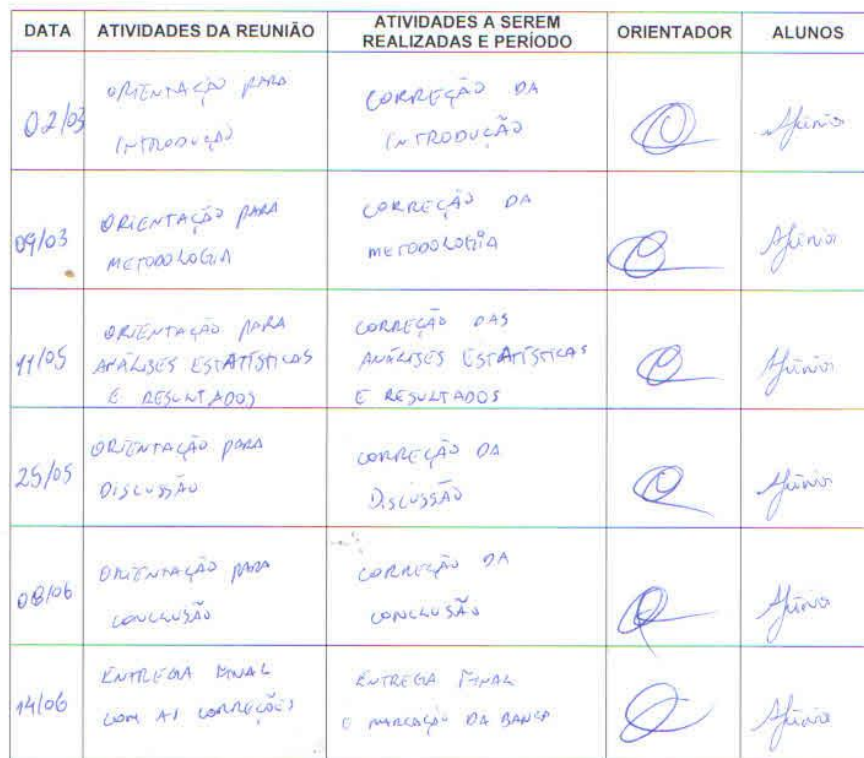 DATA
ATIVIDADES DA REUNIÃO
ATIVIDADES A SEREM
REALIZADAS E PERÍODO
ORIENTADOR
ALUNOS
02/03
ORIENTAÇÃO PARA
INTRODUÇÃO
CORREÇÃO DA
INTRODUÇÃO
09/03
ORIENTAÇÃO PARA
METODOLOGIA
CORREÇÃO DA
METODOLOGIA
11/05
ORIENTAÇÃO PARA
ANÁLISES ESTATÍSTICAS
E RESULTADOS
CORREÇÃO DAS
ANÁLISES ESTATÍSTICAS
E RESULTADOS
25/05
ORIENTAÇÃO PARA
DISCUSSÃO
CORREÇÃO DA
DISCUSSÃO
08/06
ORIENTAÇÃO PARA
CONCLUSÃO
CORREÇÃO DA
CONCLUSÃO
14/06
ENTREGA FINAL
COM AS CORREÇÕES
ENTREGA FINAL
E MARCAÇÃO DA BANCA